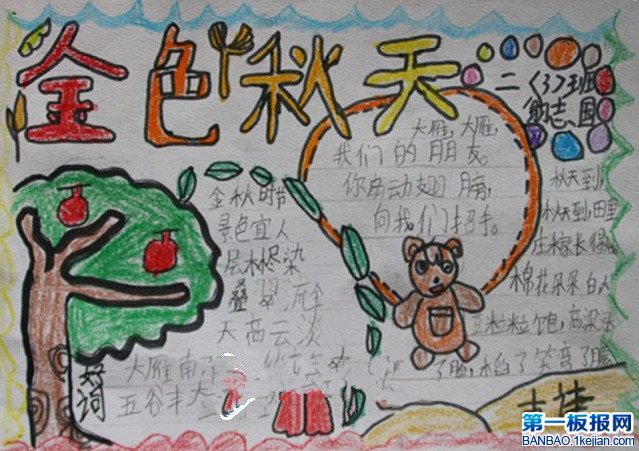 金色秋天
二(3)班
大雁,大雁,
我们的朋友。
你扇动翅膀,
向我们招手。
金秋时节
景色宜人
层林尽染
叠翠流金
天高云淡
好词
大雁南
五谷丰
秋天到,
秋天到,田里
庄稼长得
棉花朵朵白
豆粒粒饱,高粱
了脸,稻子笑弯了腰
第一板报网
BANBAO.1kejian.com